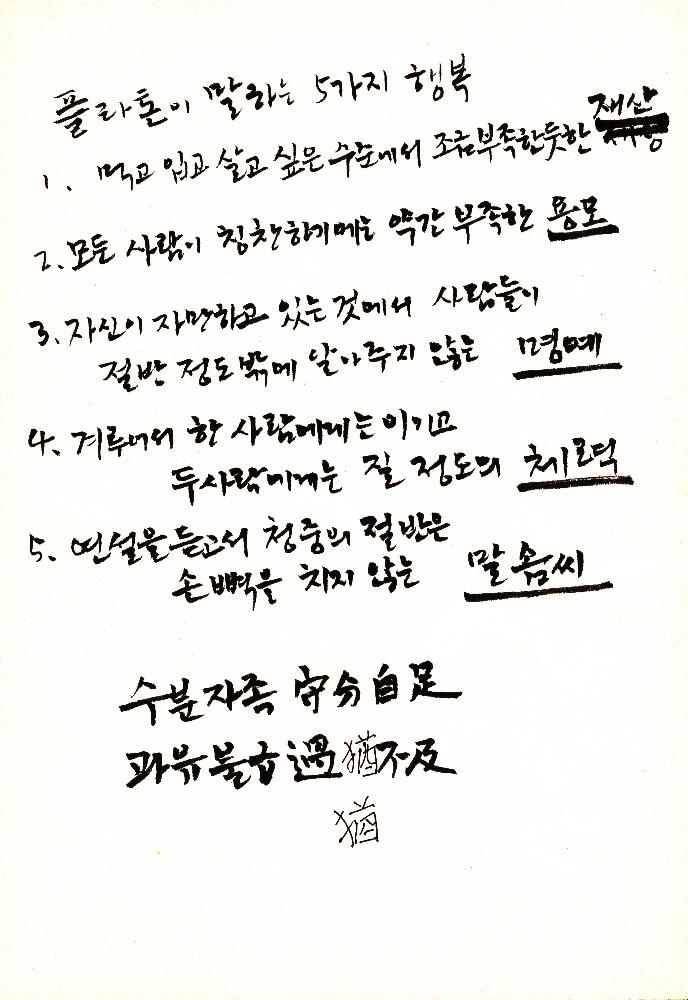 플라톤이 말하는 5가지 행복
1. 먹고 입고 살고 싶은 수준에서 조금 부족한듯한 재산
2. 모든 사람이 칭찬하기에는 약간 부족한 용모
3. 자신이 자만하고 있는 것에서 사람들이
절반 정도밖에 알아주지 않는 명예
4. 겨루어서 한 사람에게는 이기고
두사람에게는 질 정도의 체력
5. 연설을 듣고서 청중의 절반은
손뼉을 치지 않는 말솜씨
수분자족 守分自足
과유불급 過猶不及
猶